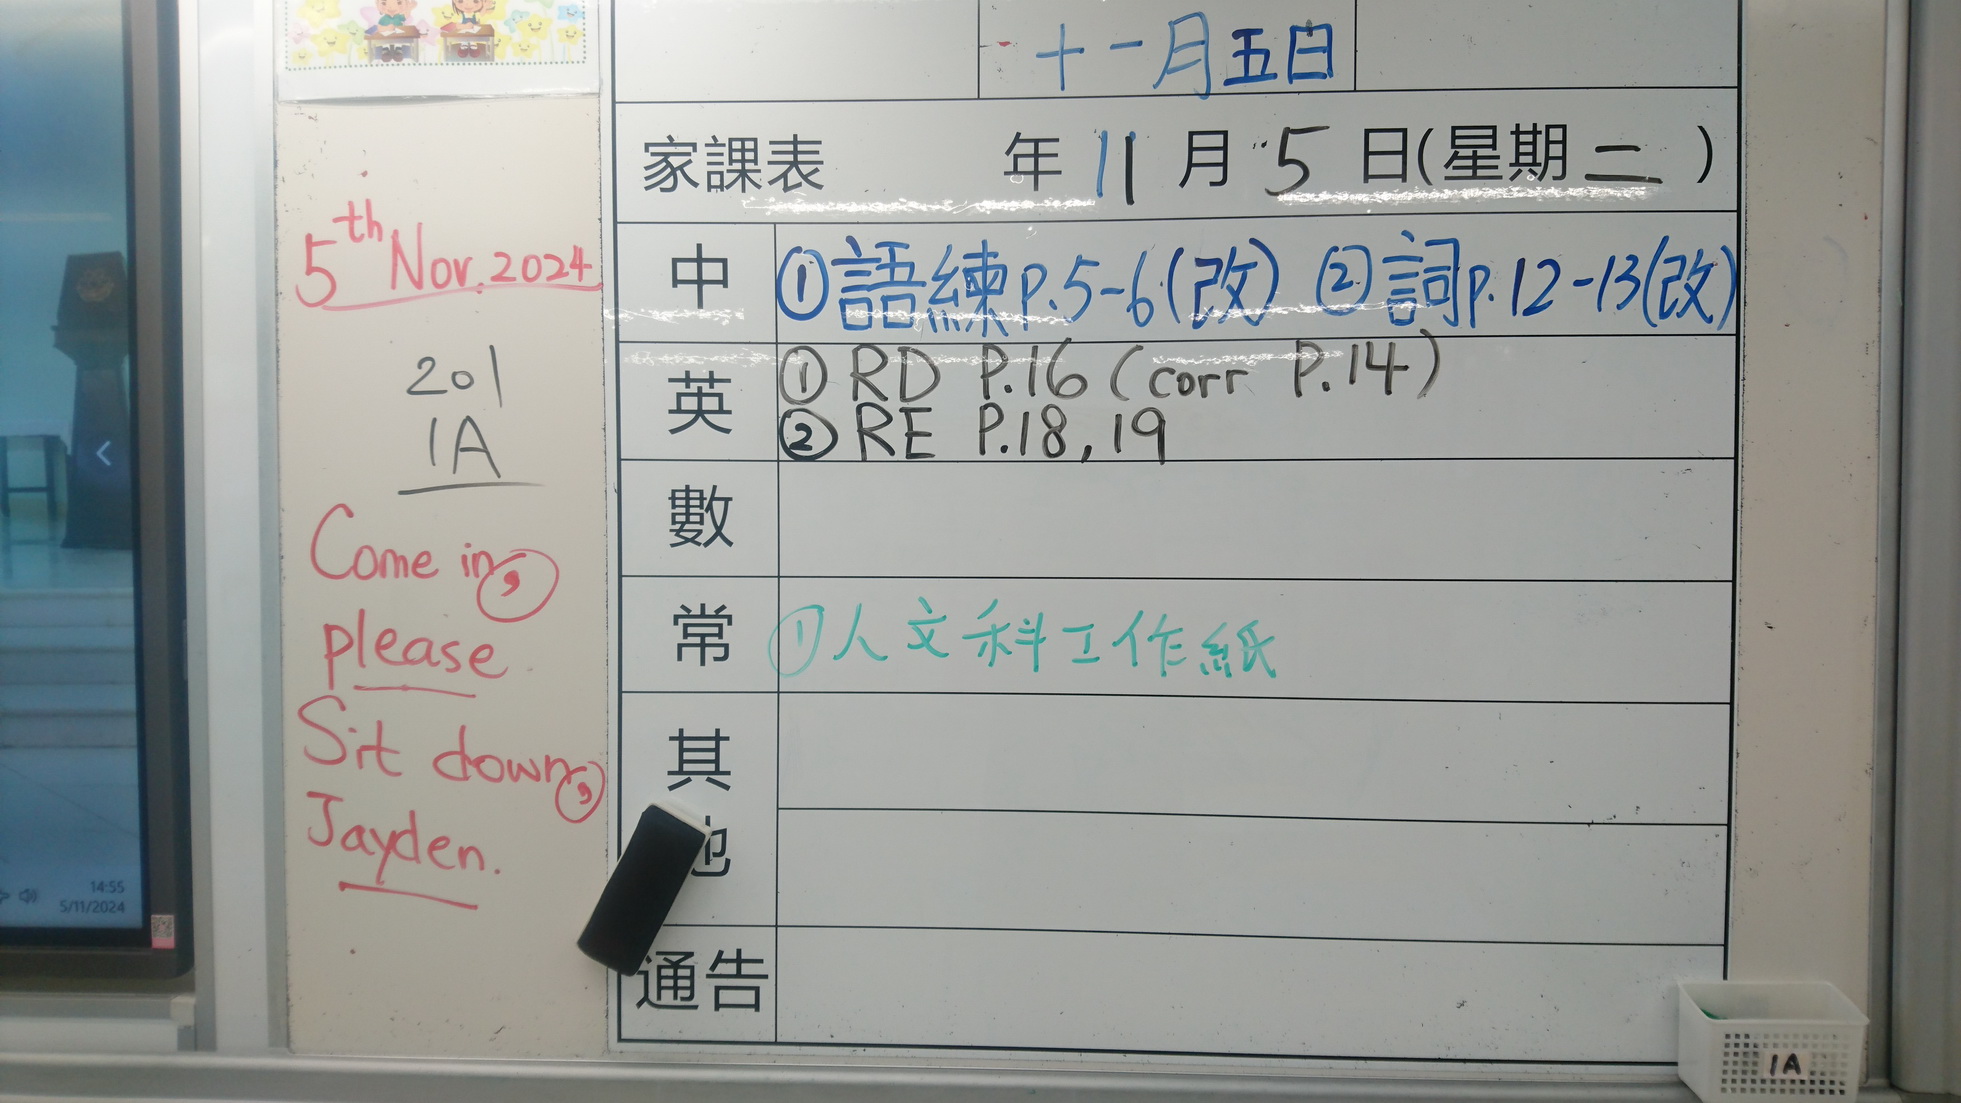 十一月五日
家課表 年 11 月 5 日(星期二)
中 ①語練p.5-6(改) ②詞p.12-13(改)
英 ① RD P.16 (corr P.14)
② RE P.18, 19
數
常 ①人文科工作紙
其
他
通告
5th Nov. 2024
201
1A
Come in,
please
Sit down,
Jayden.
14:55
5/11/2024
1A